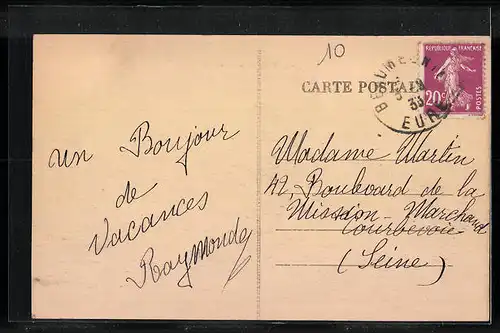 10
CARTE POSTALE
RÉPUBLIQUE FRANÇAISE
20c
POSTES
EURE
un Bonjour
de
Vacances
Raymonde
Madame Martin
42, Boulevard de la
Mission-Marchand
Courbevoie
(Seine)